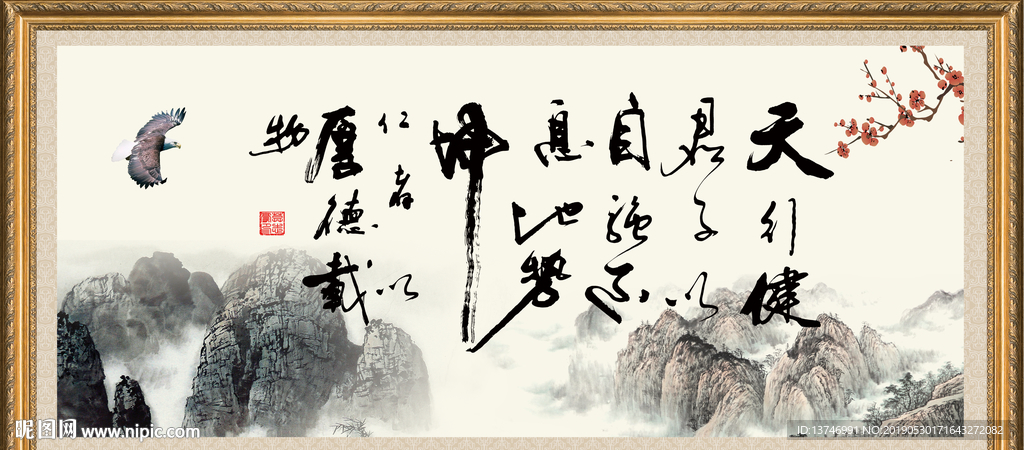 天行健
君子以
自強不
息地勢
坤
仁者以
厚德載
物
昵图网 www.nipic.com
ID:13746991 NO:20190530171643272082